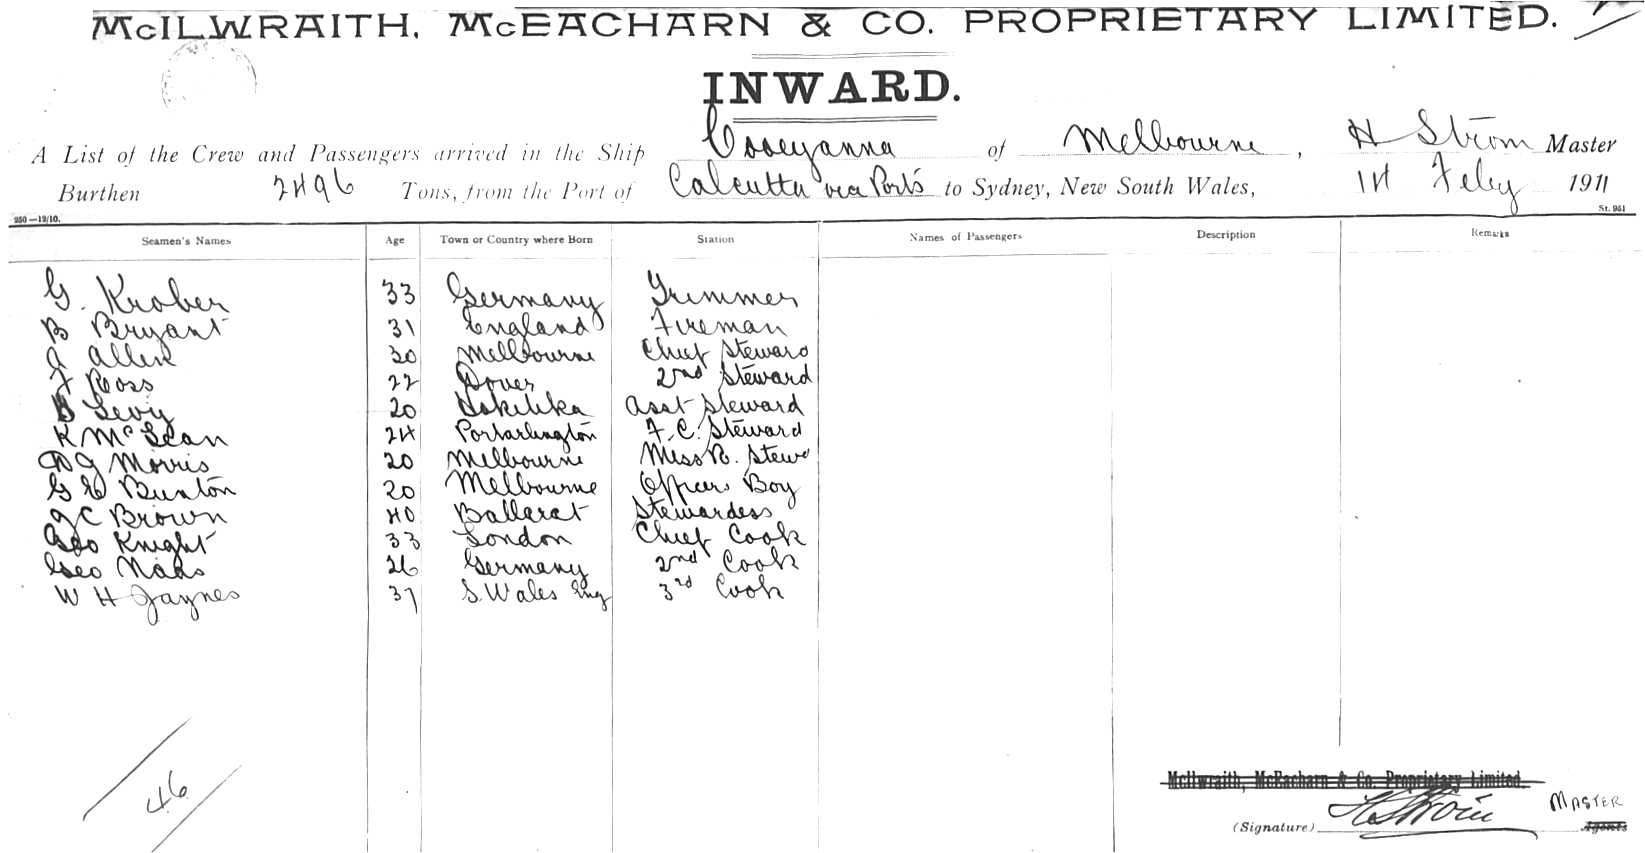 McILWRAITH, McEACHARN & CO. PROPRIETARY LIMITED.
INWARD.
A List of the Crew and Passengers arrived in the Ship Cooeyanna of Melbourne, H Ström Master
Burthen 2496 Tons, from the Port of Calcutta via Ports to Sydney, New South Wales, 14 Feby 1911
250—12/10. St. 951
Seamen's Names Age Town or Country where Born Station Names of Passengers Description Remarks
G. Krober 33 Germany Trimmer
B Bryant 31 England Fireman
A Allen 30 Melbourne Chief Steward
F Ross 22 Dover 2nd Steward
B Levy 20 Hokitika Asst Steward
K McLean 24 Portarlington F.C. Steward
D J Morris 20 Melbourne Miss R. Stewd
G E Buxton 20 Melbourne Officers Boy
J C Brown 40 Ballarat Stewardess
Geo Knight 33 London Chief Cook
Geo 26 Germany 2nd Cook
W H Jaynes 37 S. Wales Eng 3rd Cook
46
McIlwraith, McEacharn & Co. Proprietary Limited
(Signature) H Ström MASTER
Agents